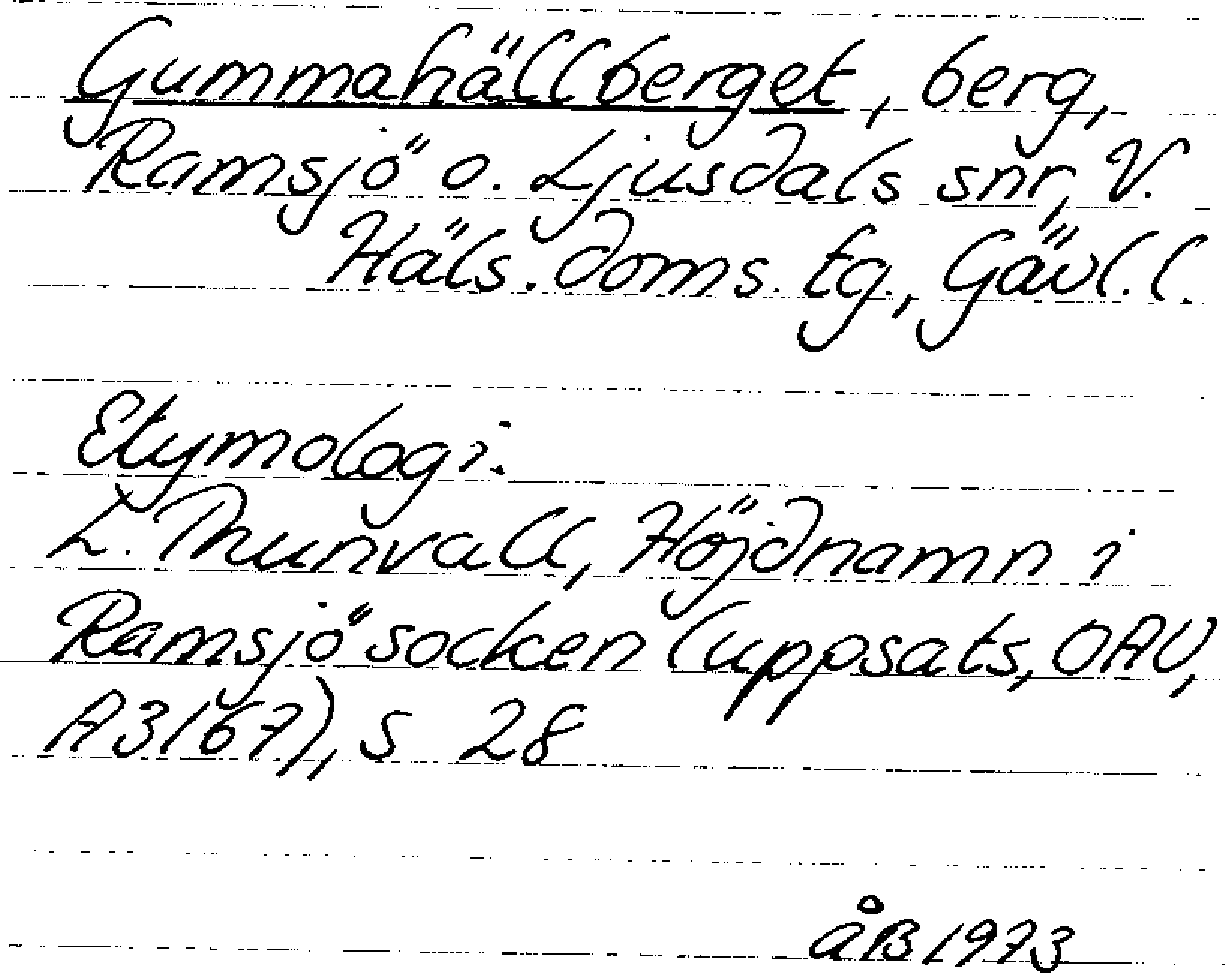 Gummahällberget, berg,
Ramsjö o. Ljusdals snr, V.
Häls. doms. tg., Gävl. l.
Etymologi.
L. Thunvall, Höjdnamn i
Ramsjö socken (uppsats, OAU,
A3167), s 28
åB 1973